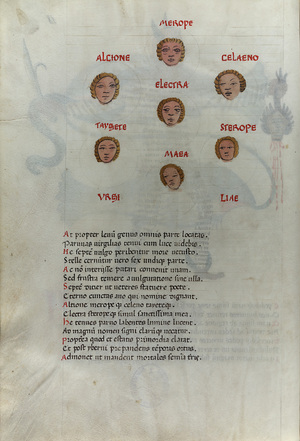 MEROPE
ALCIONE CELAENO
ELECTRA
TAYGETE STEROPE
MAEA
VRGI LIAE
At propter leuum genus omnis parte locatas.
Paruas uirgilias tenui cum luce uidebis.
He septē uulgo peribentur more uetusto
Stelle cernūtur uero sex undiq; parte.
Ac nō interisse putari conuenit unam.
Sed frustra temere a uulgi ratione sine ulla.
Septē dicier ut ueteres statuere poete.
Eterno cunctas auo qui nomine dignant.
Alcione meropeq; celeno taueteq;.
Electra steropeq; simul sanctissima mea.
He tenues paruo labentes lumine lucent.
At magnū nomen signi clariq; uocatur.
Propterea quod et estatis primordia clarat.
Et post yberni pre pandens tēporis ortus.
Admonet ut mandent mortales semīa tris.